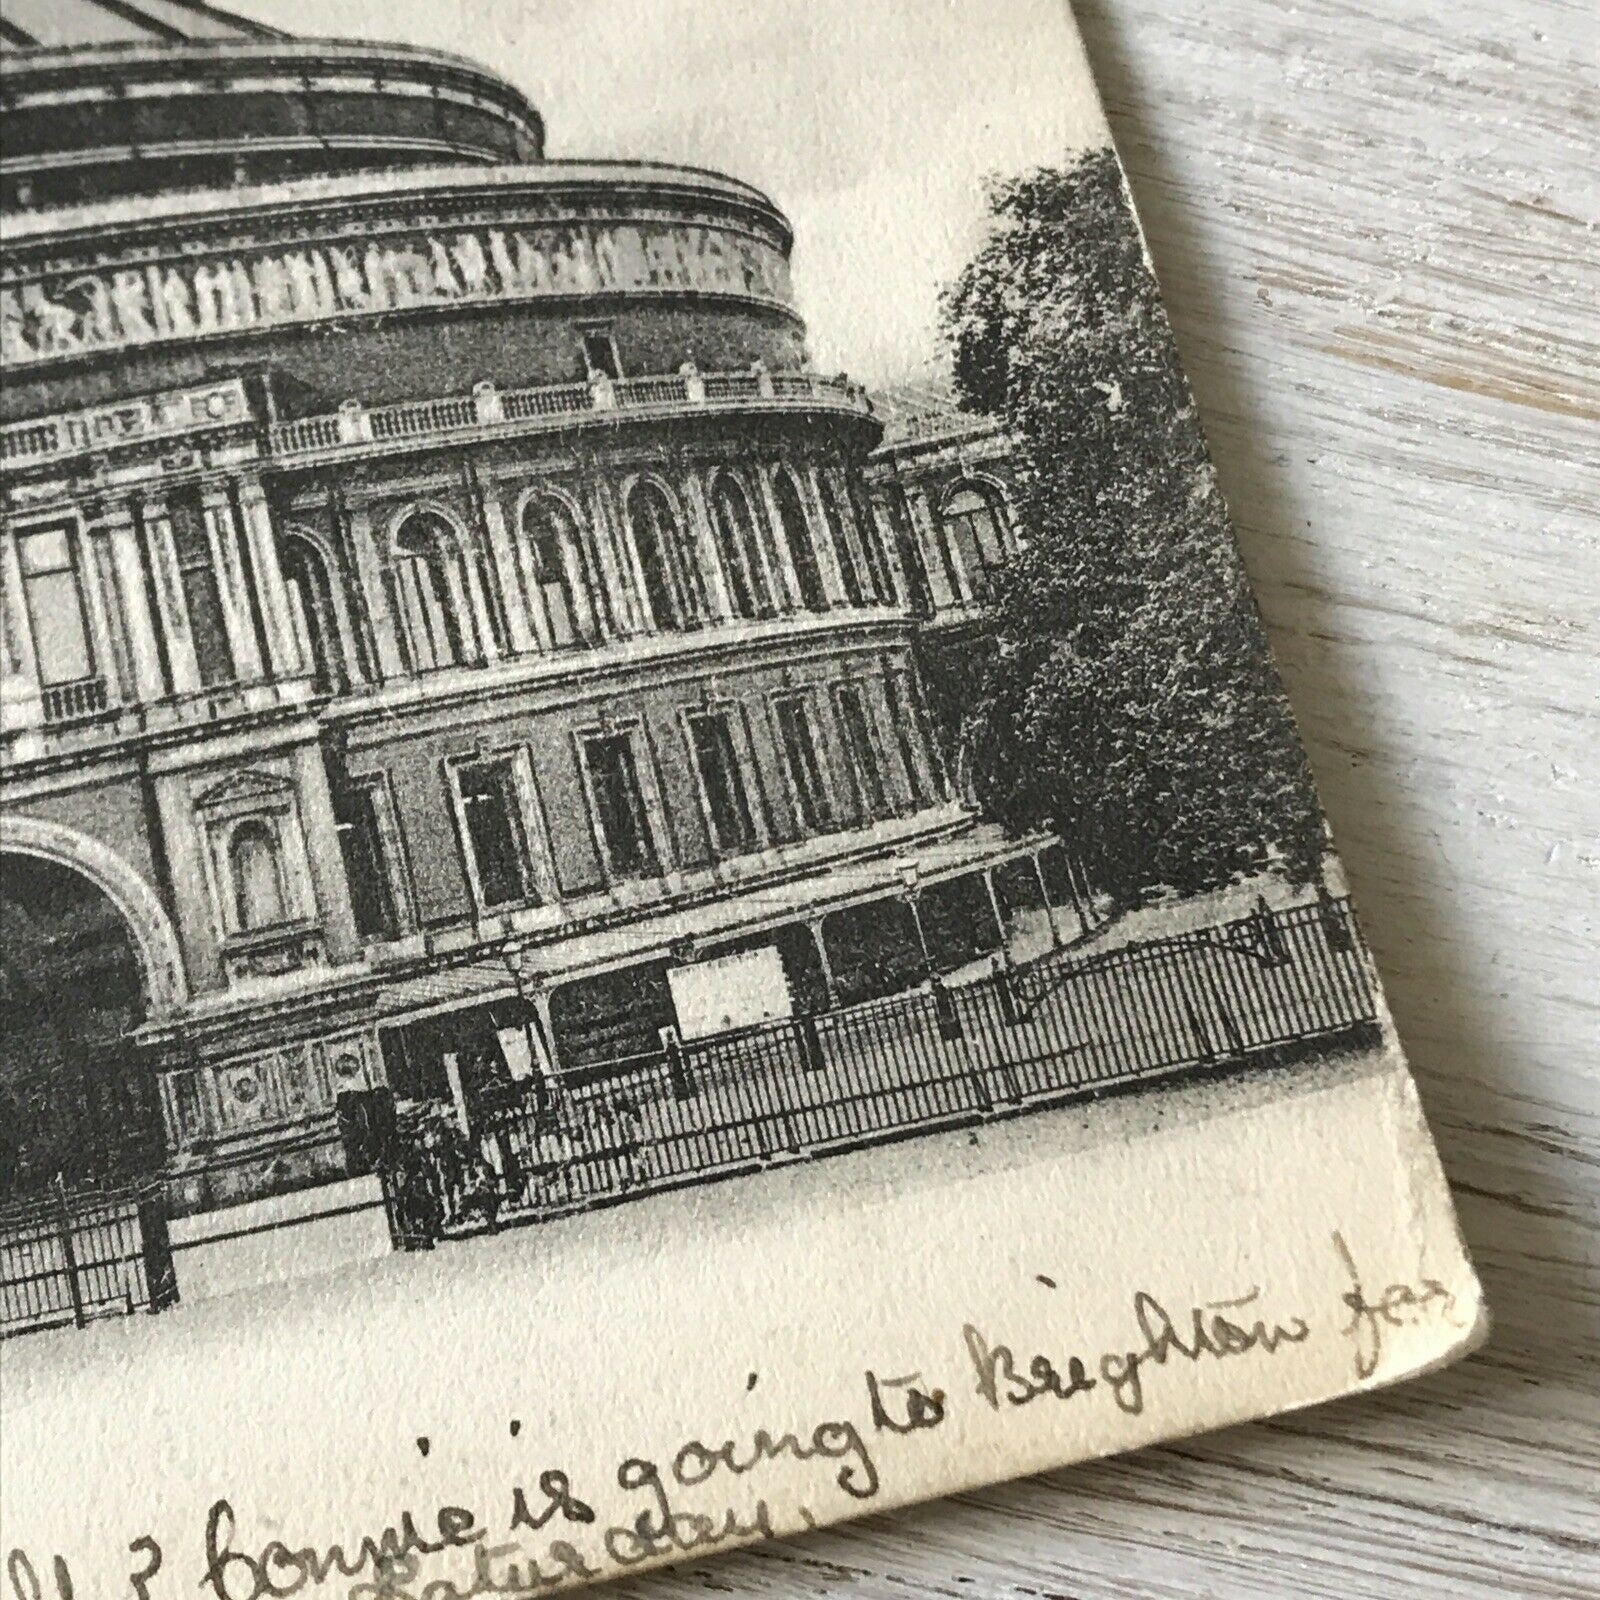 ? Connie is going to Brighton for
Saturday.